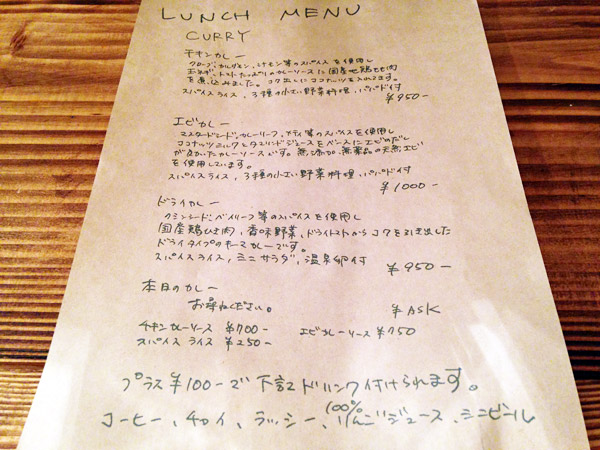 LUNCH MENU
CURRY
チキンカレー
クローブ、カルダモン、シナモン等のスパイスを使用し
玉ねぎ、トマトたっぷりのカレーソースに国産地鶏もも肉
を煮込みました。コク出しにココナッツを入れてます。
スパイスライス、3種の小さい野菜料理、パパド付
¥950-
エビカレー
マスタードシード、カレーリーフ、メティ等のスパイスを使用し
ココナッツミルクとタマリンドジュースをベースにエビのだし
が効いたカレーソースです。無添加、無薬品の天然エビ
を使用しています。
スパイスライス、3種の小さい野菜料理、パパド付
¥1000-
ドライカレー
クミンシード、ベイリーフ等のスパイスを使用し
国産鶏ひき肉、香味野菜、ドライトマトからコクを引き出した
ドライタイプのキーマカレーです。
スパイスライス、ミニサラダ、温泉卵付
¥950-
本日のカレー
お尋ねください。 ¥ASK
チキンカレーソース ¥700- エビカレーソース ¥750
スパイスライス ¥250-
プラス¥100-で下記ドリンク付けられます。
コーヒー、チャイ、ラッシー、100%りんごジュース、ミニビール